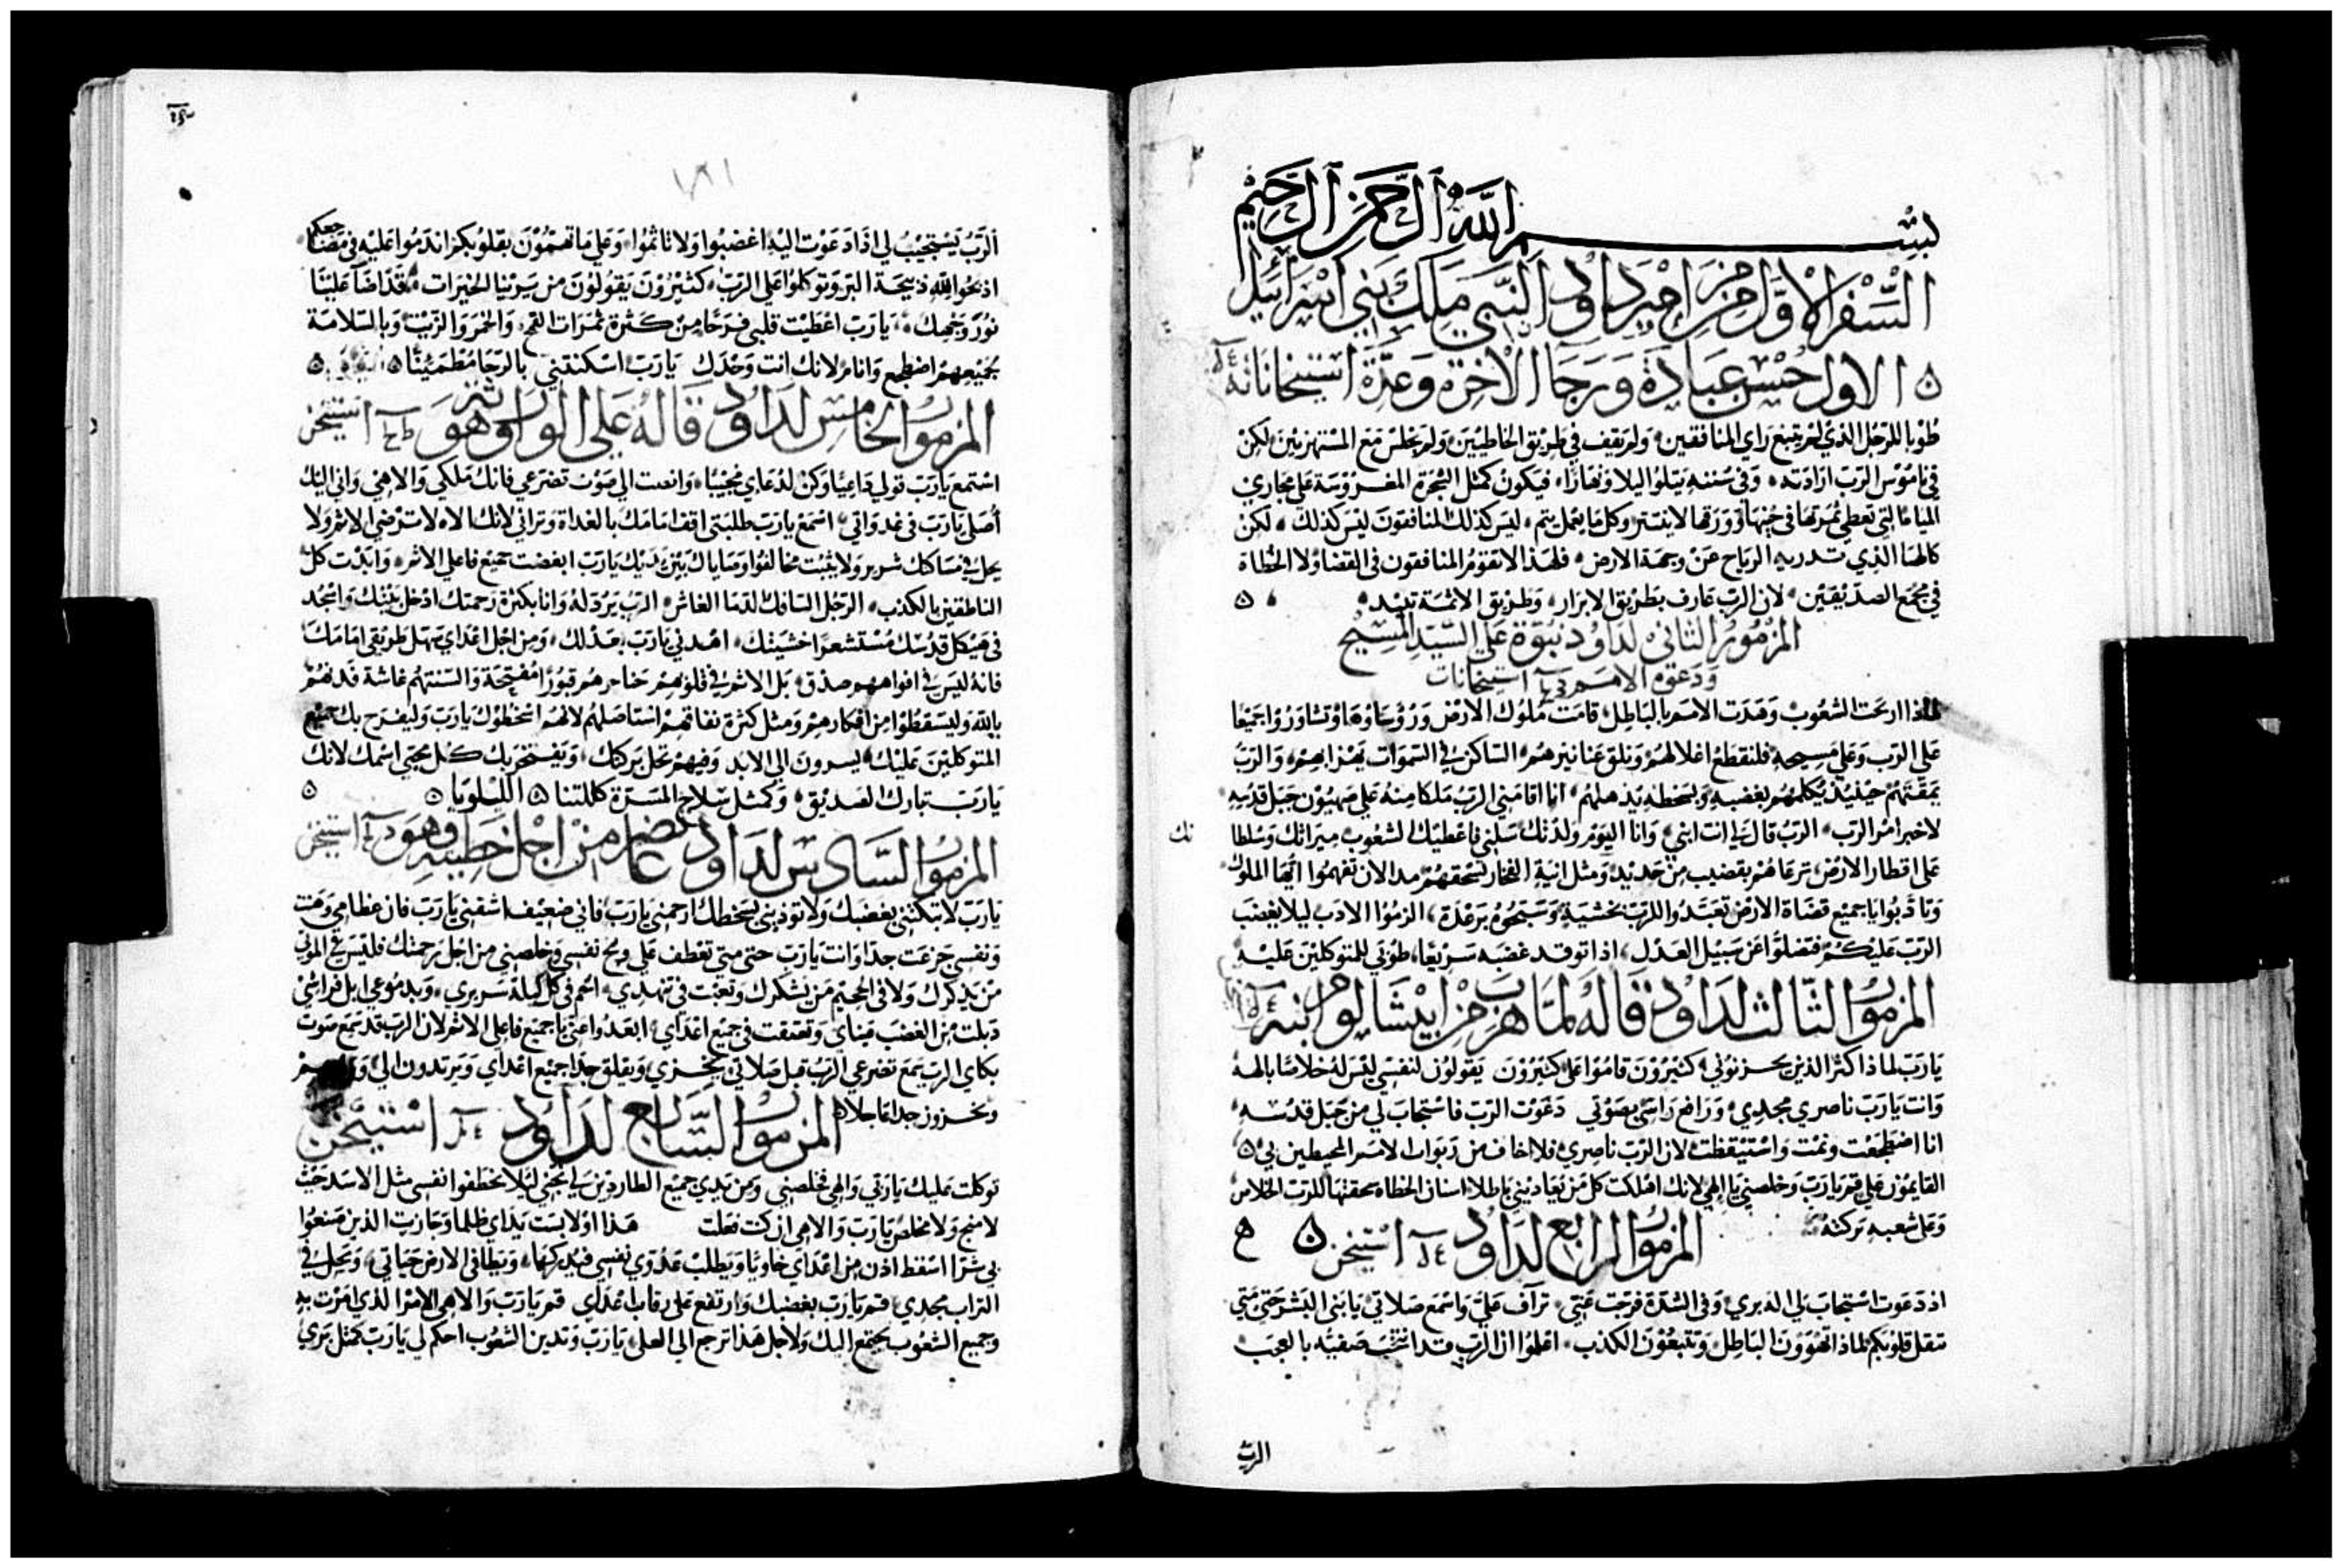 بسم الله الرحمن الرحيم
السفر الاول من مزامير داود النبي ملك بني اسرائيل
الاول حسن عبادة ورجا الاخرة وعدة استيخاناته
طوبا للرجل الذي لم يتبع راي المنافقين ولم يقف في طريق الخاطيين ولم يجلس مع المستهزيين لكن
في ناموس الرب ارادته وفي سننه يتلوا ليلا ونهارا فيكون كمثل الشجرة المغروسة على مجاري
المياه التي تعطي ثمرتها في حينها وورقها لا ينتثر وكل ما يعمل يتم ليس كذلك المنافقون ليس كذلك لكن
كالهبا الذي تدريه الرياح عن وجهة الارض فلهذا لا تقوم المنافقون في القضا ولا الخطاة
في مجمع الصديقين لان الرب عارف بطريق الابرار وطريق الاثمة تبيد
المزمور الثاني لداود نبوة على السيد المسيح
ودعوة الامم استيخانات
لماذا ارتجت الشعوب وهدت الامم بالباطل قامت ملوك الارض ورؤساؤها وتشاوروا جميعا
على الرب وعلى مسيحه فلنقطع اغلالهم ونلق عنا نيرهم الساكن في السموات يهزا بهم والرب
يمقتهم حينيذ يكلمهم بغضبه وبسخطه يذهلهم انا اقامني الرب ملكا منه على صهيون جبل قدسه
لاخبر امر الرب الرب قال لي انت ابني وانا اليوم ولدتك سلني فاعطيك الشعوب ميراثك وسلطا
نك
على اقطار الارض ترعاهم بقضيب من حديد ومثل انية الفخار تسحقهم مد الان تفهموا ايها الملوك
وتادبوا يا جميع قضاة الارض تعبدوا للرب بخشية وسبحوه برعدة الزموا الادب ليلا يغضب
الرب عليكم فتضلوا عن سبيل العدل اذا توقد غضبه سريعا طوبى للمتوكلين عليه
المزمور الثالث لداود قاله لما هرب من ابيشالوم ابنه
يا رب لماذا كثر الذين يحزنوني كثيرون قاموا علي كثيرون يقولون لنفسي ليس له خلاصا بالهه
وانت يا رب ناصري مجدي ورافع راسي بصوتي دعوت الرب فاستجاب لي من جبل قدسه
انا اضطجعت ونمت واستيقظت لان الرب ناصري فلا اخاف من ربوات الامم المحيطين بي
القايمون علي قم يا رب وخلصني يا الهي لانك اهلكت كل من يعاديني باطلا اسنان الخطاه سحقتها للرب الخلاص
وعلى شعبه بركته
المزمور الرابع لداود استيخن
اذ دعوت استجاب لي الد بري وفي الشدة فرجت عني تراف علي واسمع صلاتي يا بني البشر حتى متى
تثقل قلوبكم لماذا تهوون الباطل وتتبعون الكذب اعلموا ان الرب قد انتخب صفيه بالعجب
الرب
١٨١
الرب يستجيب لي اذا دعوت اليه اغضبوا ولا تاثموا وعلى ما تهمون بقلوبكم اندموا عليه في مضاجعكم
اذبحوا لله ذبيحة البر وتوكلوا على الرب كثيرون يقولون من يرينا الخيرات قد اضا علينا
نور وجهك يا رب اعطيت قلبي فرحا من كثرة ثمرات القمح والخمر والزيت وبالسلامة
جميعهم اضطجع وانام لانك انت وحدك يا رب اسكنتني بالرجا مطمئنا
المزمور الخامس لداود قاله على الوراثة وهو استيخن
استمع يا رب قولي داعيا وكن لدعاي مجيبا وانصت الى صوت تضرعي فانك ملكي والاهي واني اليك
اصلي يا رب في غدواتي اسمع يا رب طلبتي اقف امامك بالغداة وتراني لانك الاه لا ترضى الاثم ولا
يحل في مساكنك شرير ولا يثبت مخالفوا وصاياك بين يديك يا رب ابغضت جميع فاعلي الاثم وابدت كل
الناطقين بالكذب الرجل السافك الدما الغاش الرب يرذله وانا بكثرة رحمتك ادخل بيتك واسجد
في هيكل قدسك مستشعرا خشيتك اهدني يا رب بعدلك ومن اجل اعداي سهل طريقي امامك
فانه ليس في افواههم صدق بل الاثم في قلوبهم حناجرهم قبورا مفتحة والسنتهم غاشة فدنهم
يا الله وليسقطوا من افكارهم ومثل كثرة نفاقهم استاصلهم لانهم اسخطوك يا رب وليفرح بك جميع
المتوكلين عليك يسرون الى الابد وفيهم تحل بركتك ويفتخر بك كل محبي اسمك لانك
يا رب تبارك الصديق وكمثل سلاح المسرة كللتنا الليلويا
المزمور السادس لداود من اجل خطيته وهو استيخن
يا رب لا تبكتني بغضبك ولا تودبني بسخطك ارحمني يا رب فاني ضعيف اشفني يا رب فان عظامي وهت
ونفسي جزعت جدا وانت يا رب حتى متى تعطف علي ونج نفسي وخلصني من اجل رحمتك فليس في الموتى
من يذكرك ولا في الجحيم من يشكرك وتعبت في تنهدي احم في كل ليلة سريري وبدموعي ابل فراشي
ذبلت من الغضب عيناي وتعتقت في جميع اعداي ابعدوا عني يا جميع فاعلي الاثم لان الرب قد سمع صوت
بكاي الرب سمع تضرعي الرب قبل صلاتي يخزي ويقلق جدا جميع اعداي ويرتدون الى
ويخزون جدا عاجلا المزمور السابع لداود استيخن
توكلت عليك يا ربي والهي فخلصني ومن يدي جميع الطاردين لي نجني ليلا يخطفوا نفسي مثل الاسد حيث
لا منج ولا مخلص يا رب والاهي ان كنت فعلت هذا او لابست يداي ظلما وجازيت الذين صنعوا
بي شرا اسقط اذن من اعداي خاويا ويطلب عدوي نفسي فيدركها ويطا في الارض حياتي ويحل في
التراب مجدي قم يا رب بغضبك وارتفع على رقاب اعداي قم يا رب والاهي الامر الذي امرت به
وجميع الشعوب يجتمع اليك ولاجل هذا ترجع الى العلى يا رب وتدين الشعوب احكم لي يا رب كمثل بري